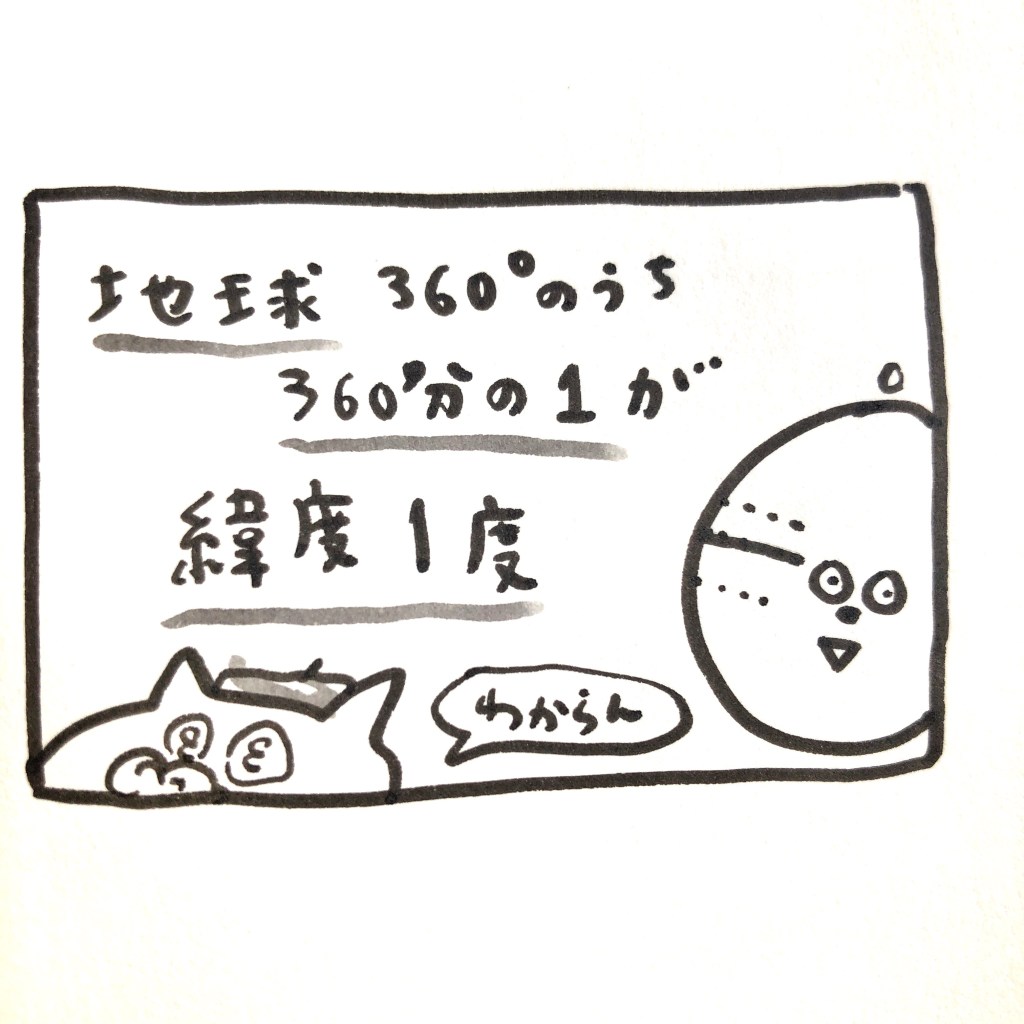 地球 360°のうち
360°分の1が
緯度1度
わからん